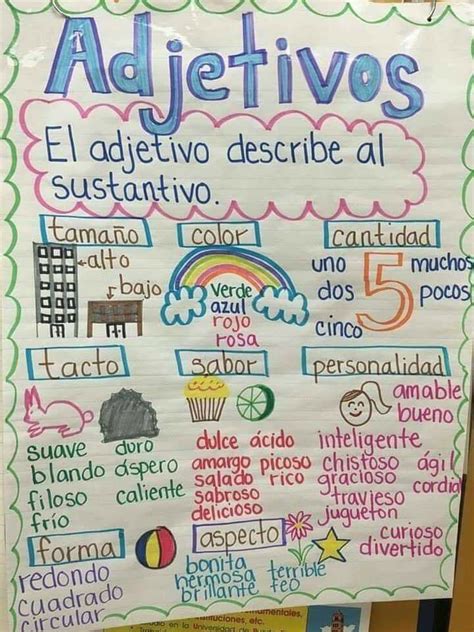 Adjetivos
El adjetivo describe al
sustantivo.
tamaño
alto
bajo
color
verde
azul
rojo
rosa
cantidad
uno
dos
cinco
5
muchos
pocos
tacto
suave duro
blando áspero
filoso caliente
frío
sabor
dulce ácido
amargo picoso
salado rico
sabroso
delicioso
personalidad
amable
bueno
inteligente
chistoso ágil
gracioso cordial
travieso
juguetón
curioso
divertido
forma
redondo
cuadrado
circular
aspecto
bonita
hermosa terrible
brillante feo
etc.